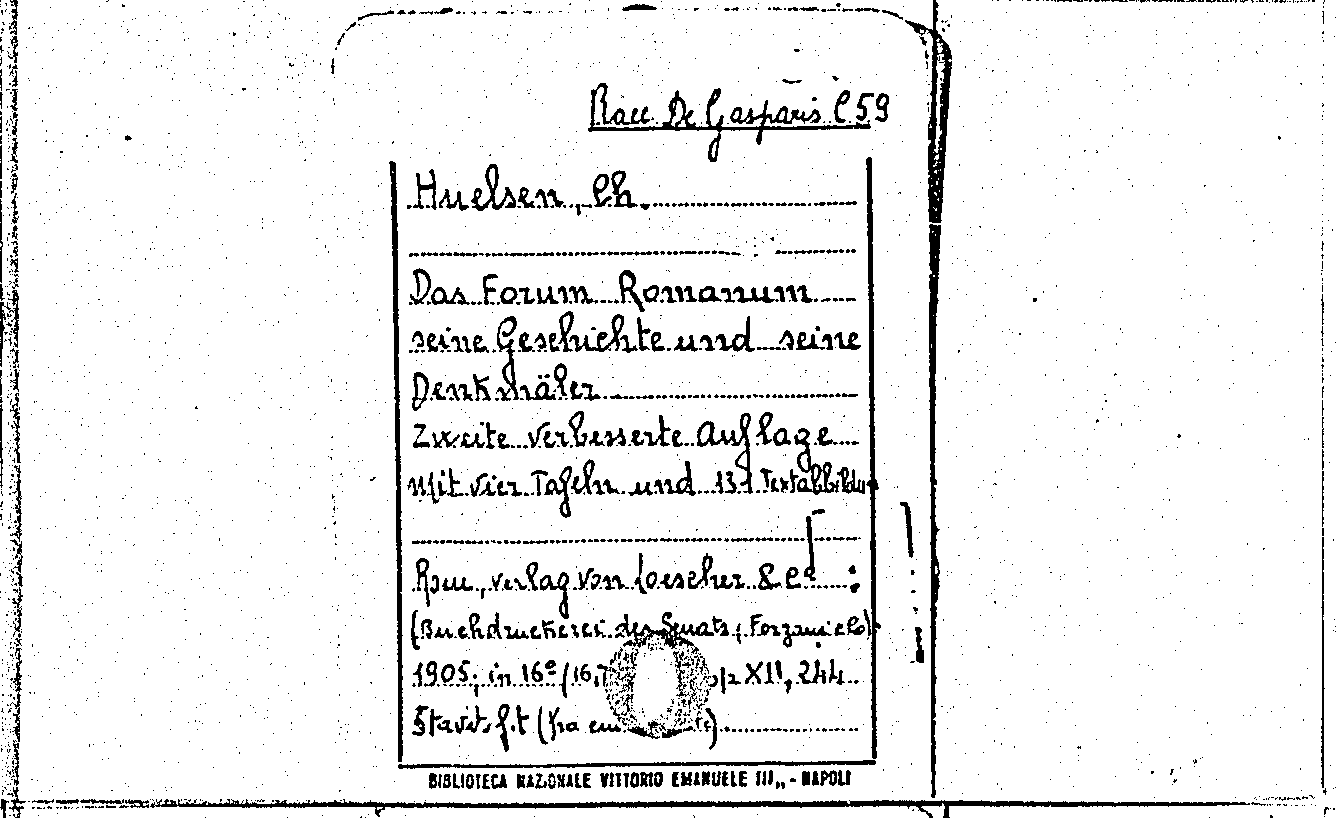 Racc. De Gasparis C 59
Huelsen, Ch.
Das Forum Romanum
seine Geschichte und seine
Denkmäler
Zweite verbesserte Auflage
Mit vier Tafeln und 131 Textabbildu
Rom, Verlag von Loescher & Cº
(Buchdruckerei des Senats, Forzani e C.)
1905; in 16º (16, XII, 244
5 tavv. f.t (fra cui
BIBLIOTECA NAZIONALE VITTORIO EMANUELE III„ - NAPOLI